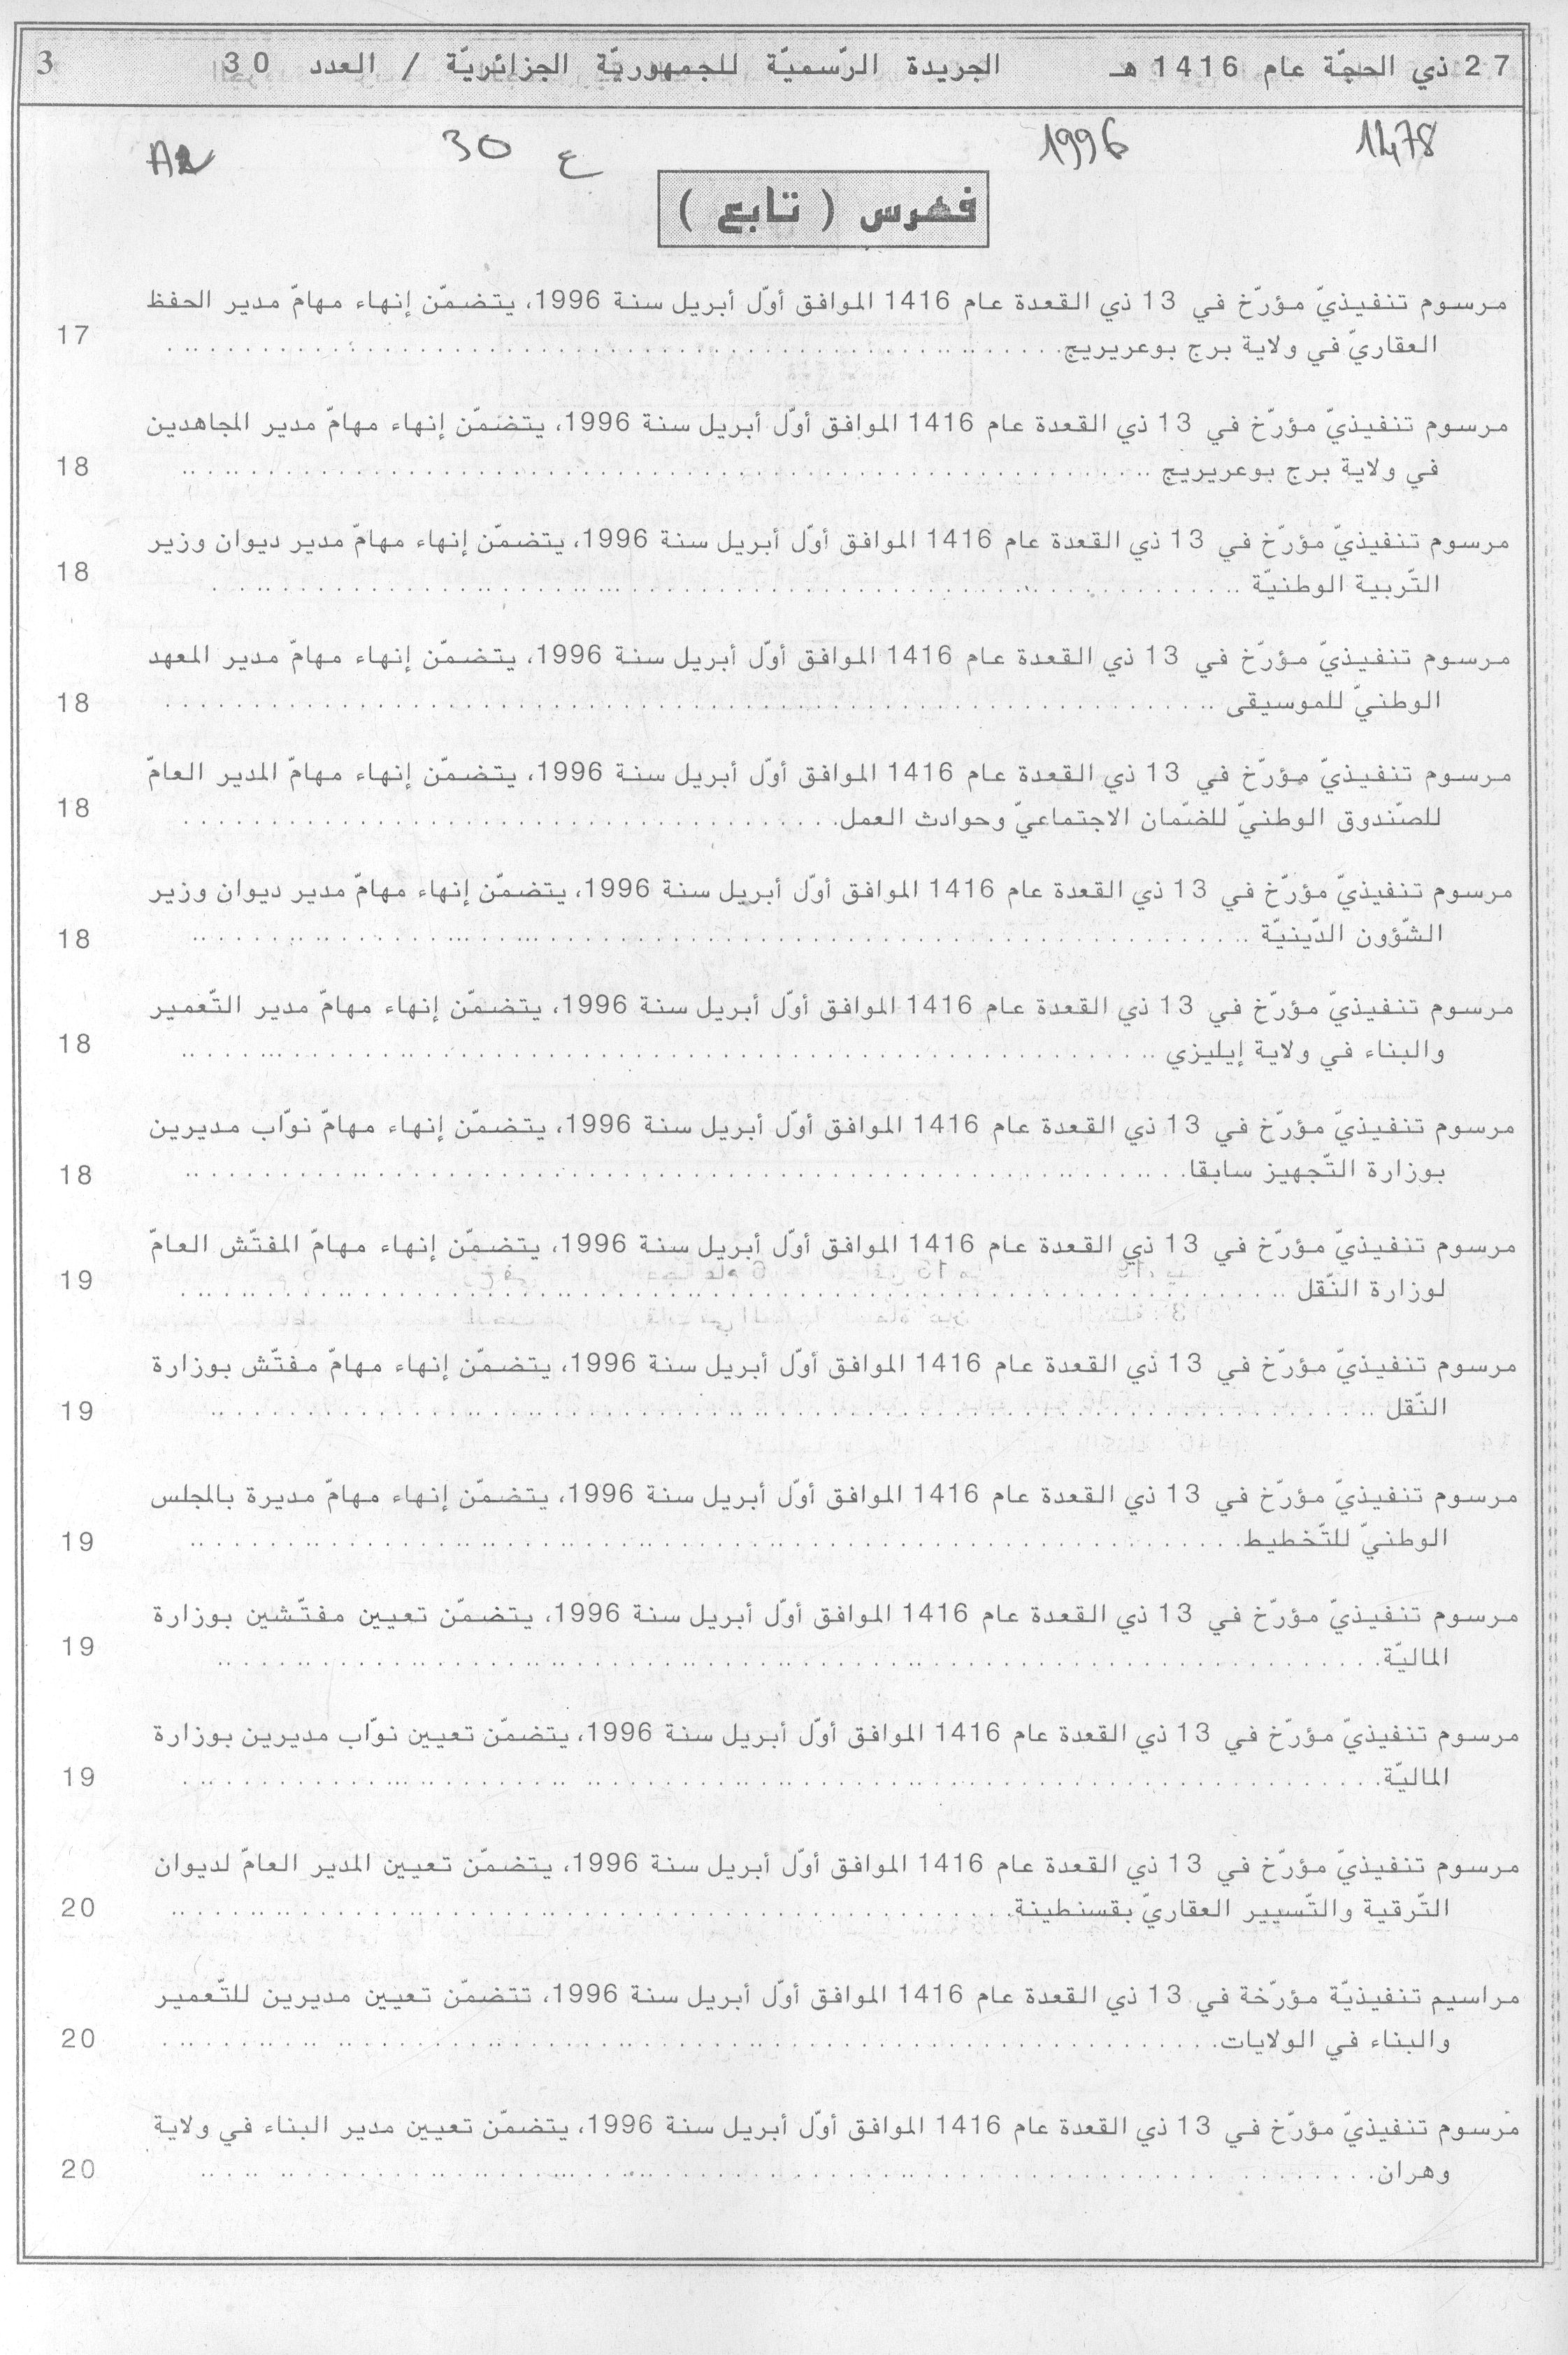 27 ذي الحجّة عام 1416 هـ الجريدة الرّسميّة للجمهوريّة الجزائريّة / العدد 30 3
1996 ع 30 AR
فهرس ( تابع )
مرسوم تنفيذيّ مؤرّخ في 13 ذي القعدة عام 1416 الموافق أوّل أبريل سنة 1996، يتضمّن إنهاء مهامّ مدير الحفظ
العقاريّ في ولاية برج بوعريريج 17
مرسوم تنفيذيّ مؤرّخ في 13 ذي القعدة عام 1416 الموافق أوّل أبريل سنة 1996، يتضمّن إنهاء مهامّ مدير المجاهدين
في ولاية برج بوعريريج 18
مرسوم تنفيذيّ مؤرّخ في 13 ذي القعدة عام 1416 الموافق أوّل أبريل سنة 1996، يتضمّن إنهاء مهامّ مدير ديوان وزير
التّربية الوطنيّة 18
مرسوم تنفيذيّ مؤرّخ في 13 ذي القعدة عام 1416 الموافق أوّل أبريل سنة 1996، يتضمّن إنهاء مهامّ مدير المعهد
الوطنيّ للموسيقى 18
مرسوم تنفيذيّ مؤرّخ في 13 ذي القعدة عام 1416 الموافق أوّل أبريل سنة 1996، يتضمّن إنهاء مهامّ المدير العامّ
للصّندوق الوطنيّ للضّمان الاجتماعيّ وحوادث العمل 18
مرسوم تنفيذيّ مؤرّخ في 13 ذي القعدة عام 1416 الموافق أوّل أبريل سنة 1996، يتضمّن إنهاء مهامّ مدير ديوان وزير
الشّؤون الدّينيّة 18
مرسوم تنفيذيّ مؤرّخ في 13 ذي القعدة عام 1416 الموافق أوّل أبريل سنة 1996، يتضمّن إنهاء مهامّ مدير التّعمير
والبناء في ولاية إيليزي 18
مرسوم تنفيذيّ مؤرّخ في 13 ذي القعدة عام 1416 الموافق أوّل أبريل سنة 1996، يتضمّن إنهاء مهامّ نوّاب مديرين
بوزارة التّجهيز سابقا 18
مرسوم تنفيذيّ مؤرّخ في 13 ذي القعدة عام 1416 الموافق أوّل أبريل سنة 1996، يتضمّن إنهاء مهامّ المفتّش العامّ
لوزارة النّقل 19
مرسوم تنفيذيّ مؤرّخ في 13 ذي القعدة عام 1416 الموافق أوّل أبريل سنة 1996، يتضمّن إنهاء مهامّ مفتّش بوزارة
النّقل 19
مرسوم تنفيذيّ مؤرّخ في 13 ذي القعدة عام 1416 الموافق أوّل أبريل سنة 1996، يتضمّن إنهاء مهامّ مديرة بالمجلس
الوطنيّ للتّخطيط 19
مرسوم تنفيذيّ مؤرّخ في 13 ذي القعدة عام 1416 الموافق أوّل أبريل سنة 1996، يتضمّن تعيين مفتّشين بوزارة
الماليّة 19
مرسوم تنفيذيّ مؤرّخ في 13 ذي القعدة عام 1416 الموافق أوّل أبريل سنة 1996، يتضمّن تعيين نوّاب مديرين بوزارة
الماليّة 19
مرسوم تنفيذيّ مؤرّخ في 13 ذي القعدة عام 1416 الموافق أوّل أبريل سنة 1996، يتضمّن تعيين المدير العامّ لديوان
التّرقية والتّسيير العقاريّ بقسنطينة 20
مراسيم تنفيذيّة مؤرّخة في 13 ذي القعدة عام 1416 الموافق أوّل أبريل سنة 1996، تتضمّن تعيين مديرين للتّعمير
والبناء في الولايات 20
مرسوم تنفيذيّ مؤرّخ في 13 ذي القعدة عام 1416 الموافق أوّل أبريل سنة 1996، يتضمّن تعيين مدير البناء في ولاية
وهران 20